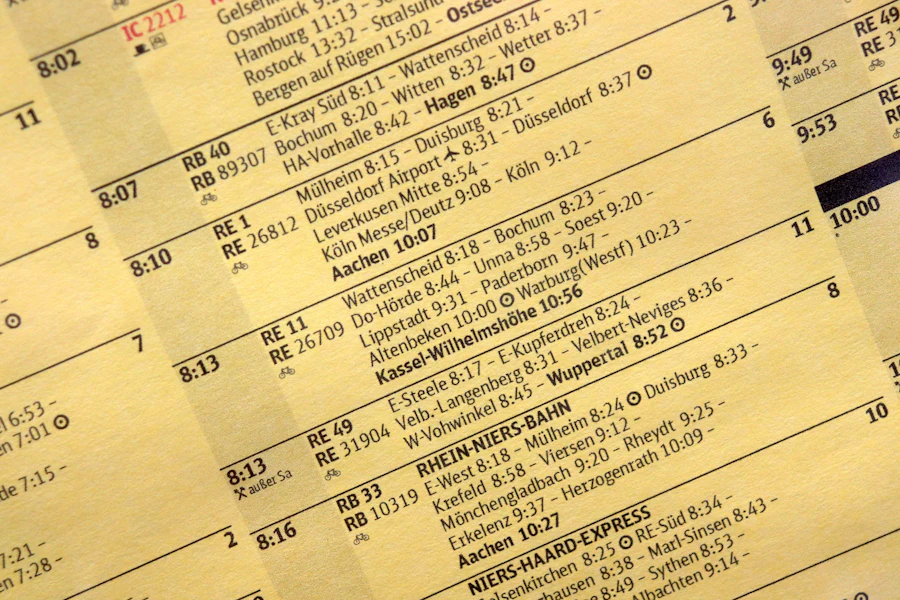 11
8
7
6:53 –
7:01
7:15 –
7:21 –
7:28 –
2
8:02
IC 2212
Osnabrück
Hamburg 11:13 –
Rostock 13:32 – Stralsund
Bergen auf Rügen 15:02 –
8:07
RB 40
RB 89307
E-Kray Süd 8:11 – Wattenscheid 8:14 –
Bochum 8:20 – Witten 8:32 – Wetter 8:37 –
HA-Vorhalle 8:42 – Hagen 8:47
2
8:10
RE 1
RE 26812
Mülheim 8:15 – Duisburg 8:21 –
Düsseldorf Airport 8:31 – Düsseldorf 8:37
Leverkusen Mitte 8:54 –
Köln Messe/Deutz 9:08 – Köln 9:12 –
Aachen 10:07
6
8:13
RE 11
RE 26709
Wattenscheid 8:18 – Bochum 8:23 –
Do-Hörde 8:44 – Unna 8:58 – Soest 9:20 –
Lippstadt 9:31 – Paderborn 9:47 –
Altenbeken 10:00 Warburg(Westf) 10:23 –
Kassel-Wilhelmshöhe 10:56
11
8:13
außer Sa
RE 49
RE 31904
E-Steele 8:17 – E-Kupferdreh 8:24 –
Velb.-Langenberg 8:31 – Velbert-Neviges 8:36 –
W-Vohwinkel 8:45 – Wuppertal 8:52
8
8:16
RB 33
RB 10319
RHEIN-NIERS-BAHN
E-West 8:18 – Mülheim 8:24 Duisburg 8:33 –
Krefeld 8:58 – Viersen 9:12 –
Mönchengladbach 9:20 – Rheydt 9:25 –
Erkelenz 9:37 – Herzogenrath 10:09 –
Aachen 10:27
10
NIERS-HAARD-EXPRESS
8:25 RE-Süd 8:34 –
8:38 – Marl-Sinsen 8:43 –
8:49 – Sythen 8:53 –
9:14 –
9:49
außer Sa
RE 49
9:53
10:00